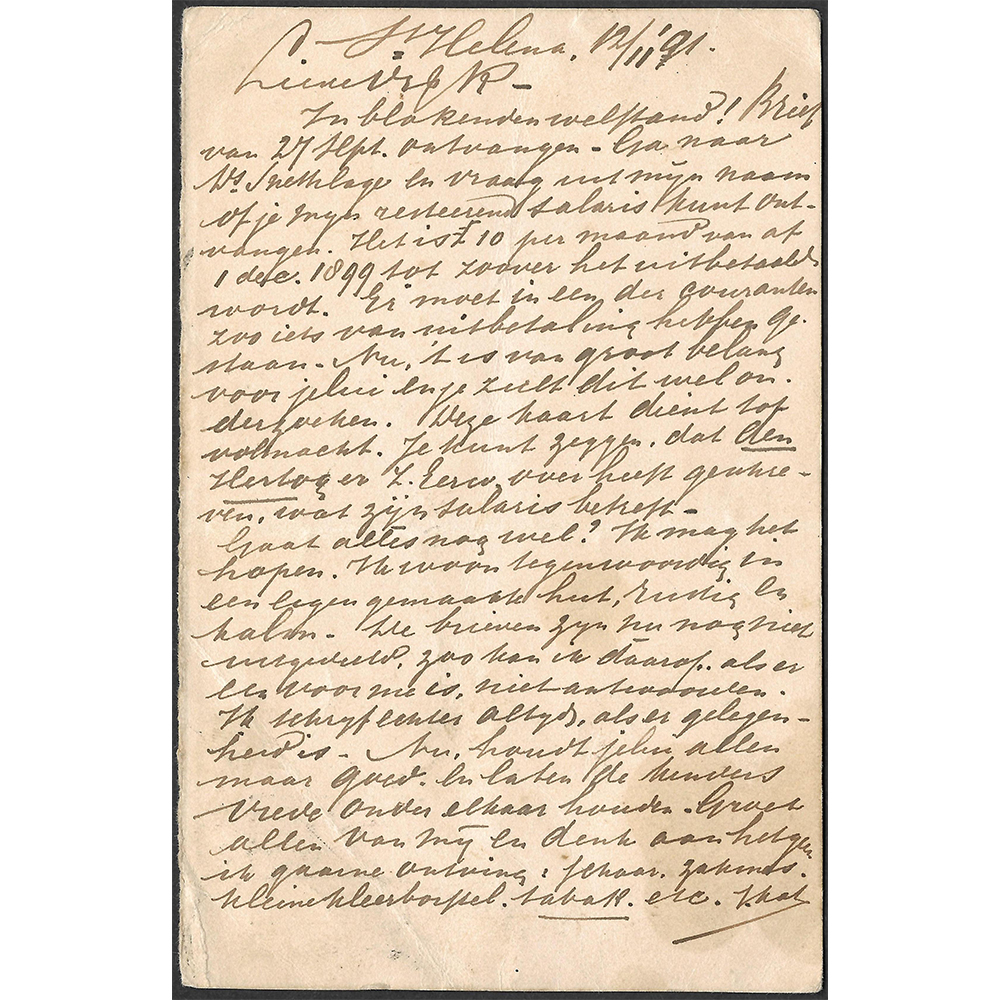 St Helena, 12/11 '91.
Lieve Vr & K –
In blakenden welstand! Brief
van 27 Sept. ontvangen – Ga naar
Ds Snethlage en vraag uit mijn naam
of je mijn resteerend salaris kunt ont-
vangen. Het is £ 10 per maand van af
1 dec. 1899 tot zoover het uitbetaald
wordt. Er moet in een der couranten
zoo iets van uitbetaling hebben ge-
staan – Nu, 't is van groot belang
voor jelui en je zult dit wel on-
derzoeken. Deze kaart dient tot
volmacht. Je kunt zeggen, dat den
Hertog er Z. Eerw. over heeft geschre-
ven, wat zijn salaris betreft –
Gaat alles nog wel? Ik mag het
hopen. Ik woon tegenwoordig in
een eigen gemaakte hut, rustig en
kalm – De brieven zijn nu nog niet
uitgedeeld, zoo kan ik daarop, als er
een voor me is, niet antwoorden.
Ik schrijf echter altijd, als er gelegen-
heid is – Nu, houdt jelui allen
maar goed. En laten de kinders
vrede onder elkaar houden – Groet
allen van mij en denk aan hetgeen
ik gaarne ontving: schaar, zakmes.
kleine kleerborstel. tabak. etc.